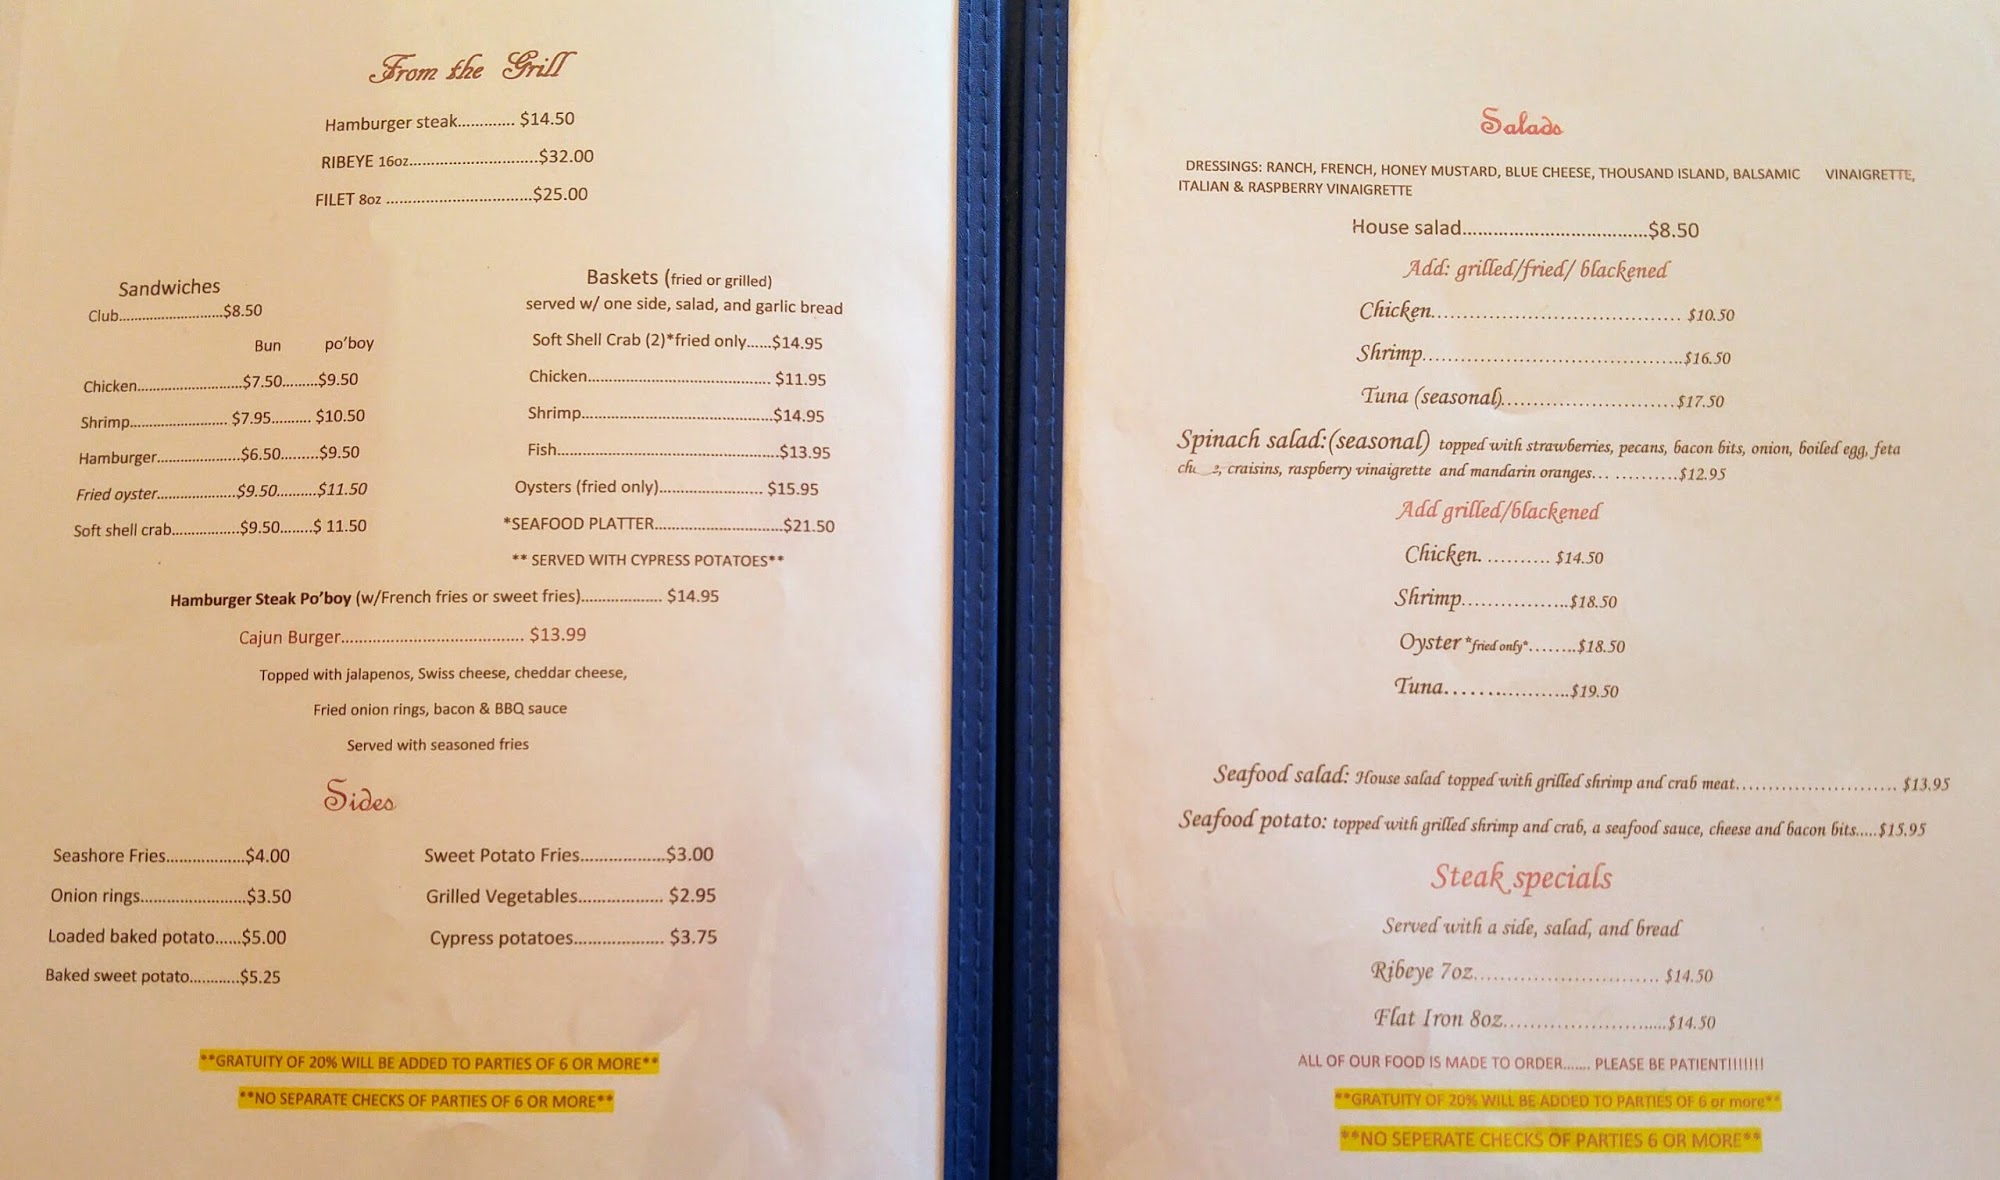 From the Grill
Hamburger steak............. $14.50
RIBEYE 16oz...............................$32.00
FILET 8oz ...................................$25.00
Sandwiches
Club...........................$8.50
Bun po'boy
Chicken...........................$7.50.........$9.50
Shrimp......................... $7.95.......... $10.50
Hamburger.....................$6.50.........$9.50
Fried oyster....................$9.50..........$11.50
Soft shell crab.................$9.50........$ 11.50
Baskets (fried or grilled)
served w/ one side, salad, and garlic bread
Soft Shell Crab (2)*fried only......$14.95
Chicken............................................. $11.95
Shrimp...............................................$14.95
Fish......................................................$13.95
Oysters (fried only)......................... $15.95
*SEAFOOD PLATTER...............................$21.50
** SERVED WITH CYPRESS POTATOES**
Hamburger Steak Po'boy (w/French fries or sweet fries).................... $14.95
Cajun Burger....................................... $13.99
Topped with jalapenos, Swiss cheese, cheddar cheese,
Fried onion rings, bacon & BBQ sauce
Served with seasoned fries
Sides
Seashore Fries...................$4.00
Onion rings.........................$3.50
Loaded baked potato......$5.00
Baked sweet potato............$5.25
Sweet Potato Fries...................$3.00
Grilled Vegetables................... $2.95
Cypress potatoes..................... $3.75
**GRATUITY OF 20% WILL BE ADDED TO PARTIES OF 6 OR MORE**
**NO SEPARATE CHECKS OF PARTIES OF 6 OR MORE**
Salads
DRESSINGS: RANCH, FRENCH, HONEY MUSTARD, BLUE CHEESE, THOUSAND ISLAND, BALSAMIC VINAIGRETTE,
ITALIAN & RASPBERRY VINAIGRETTE
House salad....................................$8.50
Add: grilled/fried/ blackened
Chicken....................................... $10.50
Shrimp.........................................$16.50
Tuna (seasonal)...........................$17.50
Spinach salad:(seasonal) topped with strawberries, pecans, bacon bits, onion, boiled egg, feta
craisins, raspberry vinaigrette and mandarin oranges... ..........$12.95
Add grilled/blackened
Chicken. .......... $14.50
Shrimp.................$18.50
Oyster *fried only*........$18.50
Tuna....................$19.50
Seafood salad: House salad topped with grilled shrimp and crab meat......................... $13.95
Seafood potato: topped with grilled shrimp and crab, a seafood sauce, cheese and bacon bits.....$15.95
Steak specials
Served with a side, salad, and bread
Ribeye 7oz............................. $14.50
Flat Iron 8oz...........................$14.50
ALL OF OUR FOOD IS MADE TO ORDER....... PLEASE BE PATIENT!!!!!!!
**GRATUITY OF 20% WILL BE ADDED TO PARTIES OF 6 or more**
**NO SEPERATE CHECKS OF PARTIES 6 OR MORE**